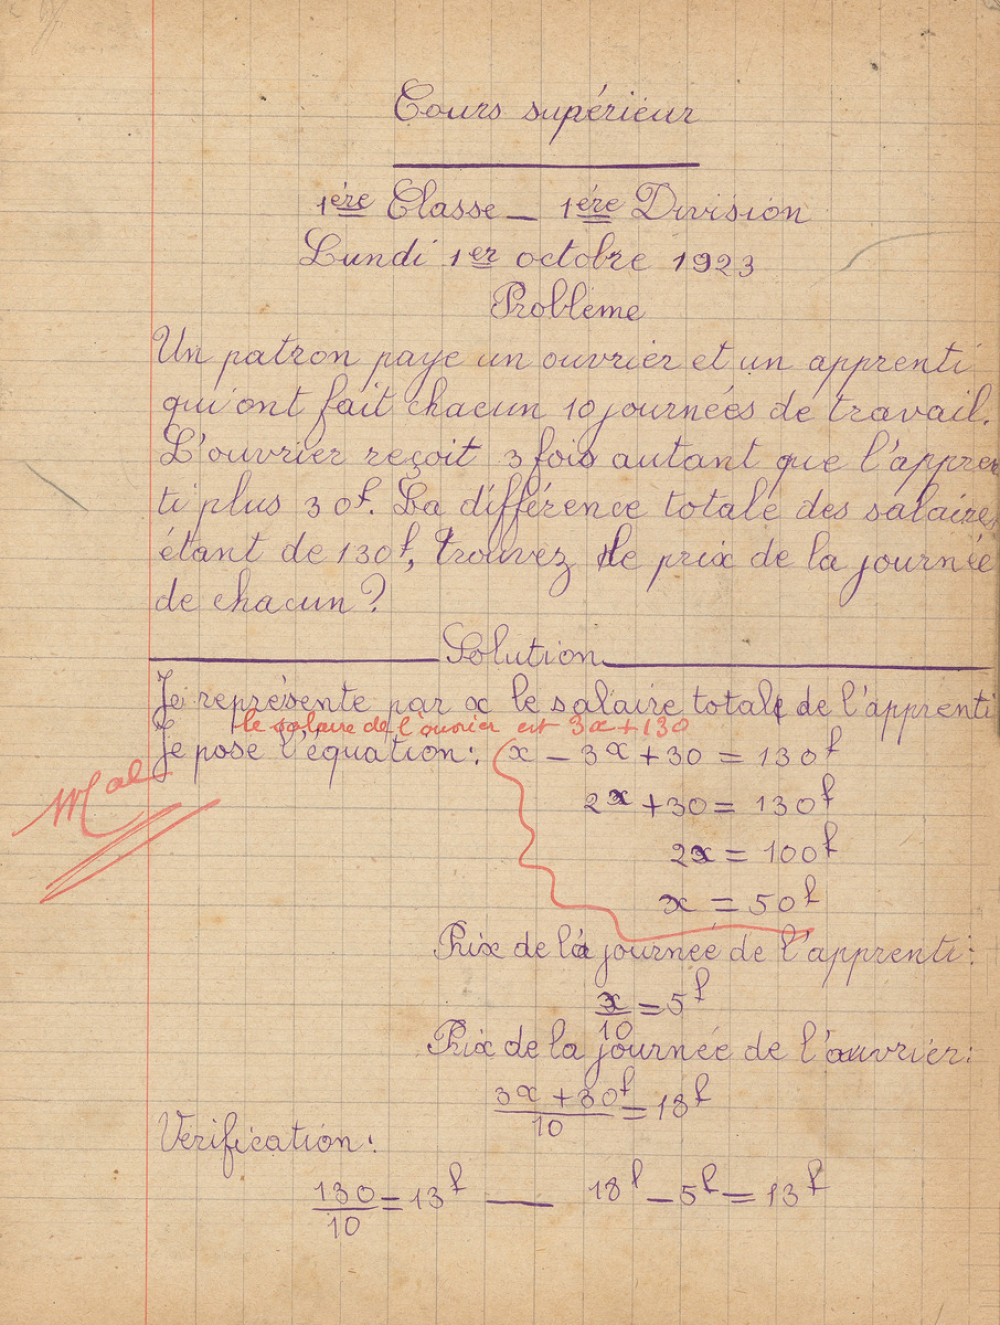 Cours supérieur
1ère Classe — 1ère Division
Lundi 1er octobre 1923
Problème
Un patron paye un ouvrier et un apprenti
qui ont fait chacun 10 journées de travail.
L'ouvrier reçoit 3 fois autant que l'appren
ti plus 30f. La différence totale des salaires
étant de 130f, trouvez le prix de la journée
de chacun ?
Solution
Je représente par x le salaire total de l'apprenti
le salaire de l'ouvrier est 3x+130
Je pose l'équation : x - 3x + 30 = 130f
Mal
2x + 30 = 130f
2x = 100f
x = 50f
Prix de la journée de l'apprenti :
x/10 = 5f
Prix de la journée de l'ouvrier :
3x + 30f/10 = 18f
Vérification :
130/10 = 13f — 18f - 5f = 13f